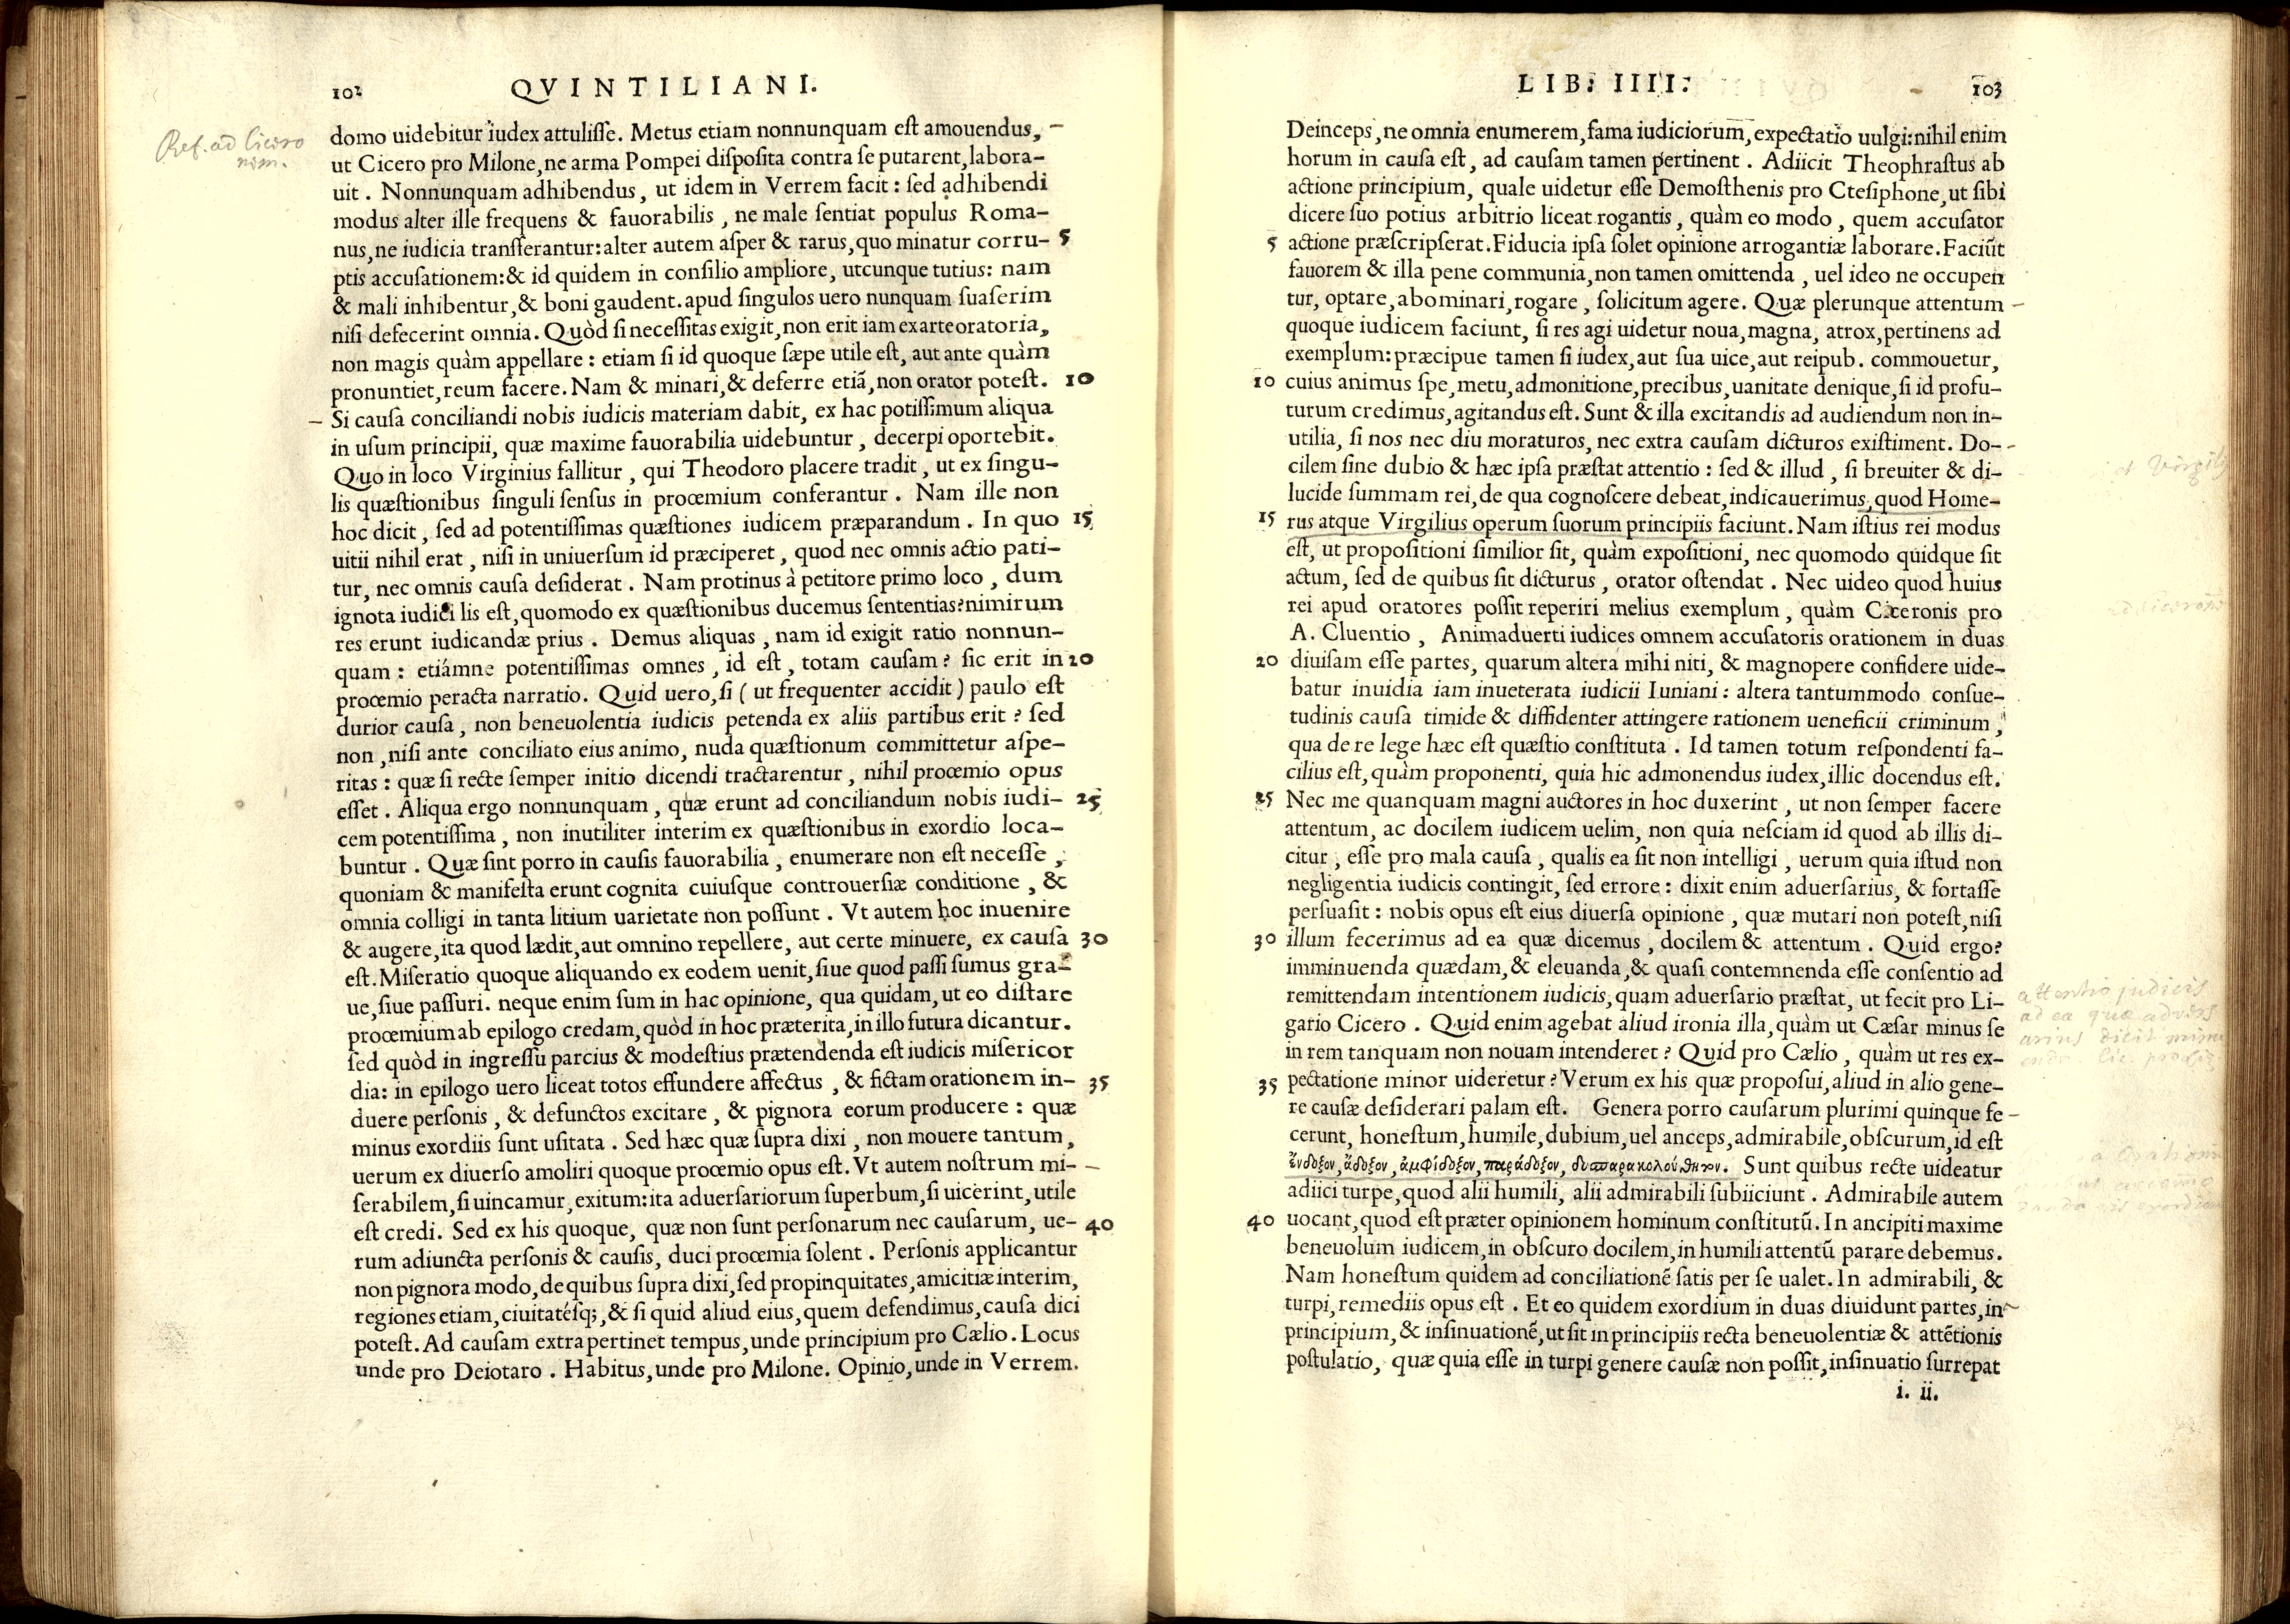 102 QVINTILIANI.
Ref. ad Cicero
nem.
domo uidebitur iudex attulisse. Metus etiam nonnunquam est amouendus,
ut Cicero pro Milone, ne arma Pompei disposita contra se putarent, labora-
uit. Nonnunquam adhibendus, ut idem in Verrem facit: sed adhibendi
modus alter ille frequens & fauorabilis, ne male sentiat populus Roma-
nus, ne iudicia transferantur: alter autem asper & rarus, quo minatur corru- 5
ptis accusationem: & id quidem in consilio ampliore, utcunque tutius: nam
& mali inhibentur, & boni gaudent. apud singulos uero nunquam suaserim
nisi defecerint omnia. Quòd si necessitas exigit, non erit iam ex arte oratoria,
non magis quàm appellare: etiam si id quoque sæpe utile est, aut ante quàm
pronuntiet, reum facere. Nam & minari, & deferre etiã, non orator potest. 10
Si causa conciliandi nobis iudicis materiam dabit, ex hac potissimum aliqua
in usum principii, quæ maxime fauorabilia uidebuntur, decerpi oportebit.
Quo in loco Virginius fallitur, qui Theodoro placere tradit, ut ex singu-
lis quæstionibus singuli sensus in proœmium conferantur. Nam ille non
hoc dicit, sed ad potentissimas quæstiones iudicem præparandum. In quo 15
uitii nihil erat, nisi in uniuersum id præciperet, quod nec omnis actio pati-
tur, nec omnis causa desiderat. Nam protinus à petitore primo loco, dum
ignota iudici lis est, quomodo ex quæstionibus ducemus sententias? nimirum
res erunt iudicandæ prius. Demus aliquas, nam id exigit ratio nonnun-
quam: etiámne potentissimas omnes, id est, totam causam? sic erit in 20
proœmio peracta narratio. Quid uero, si (ut frequenter accidit) paulo est
durior causa, non beneuolentia iudicis petenda ex aliis partibus erit? sed
non, nisi ante conciliato eius animo, nuda quæstionum committetur aspe-
ritas: quæ si recte semper initio dicendi tractarentur, nihil proœmio opus
esset. Aliqua ergo nonnunquam, quæ erunt ad conciliandum nobis iudi- 25
cem potentissima, non inutiliter interim ex quæstionibus in exordio loca-
buntur. Quæ sint porro in causis fauorabilia, enumerare non est necesse,
quoniam & manifesta erunt cognita cuiusque controuersiæ conditione, &
omnia colligi in tanta litium uarietate non possunt. Vt autem hoc inuenire
& augere, ita quod lædit, aut omnino repellere, aut certe minuere, ex causa 30
est. Miseratio quoque aliquando ex eodem uenit, siue quod passi sumus gra-
ue, siue passuri. neque enim sum in hac opinione, qua quidam, ut eo distare
proœmium ab epilogo credam, quòd in hoc præterita, in illo futura dicantur.
sed quòd in ingressu parcius & modestius prætendenda est iudicis misericor
dia: in epilogo uero liceat totos effundere affectus, & fictam orationem in- 35
duere personis, & defunctos excitare, & pignora eorum producere: quæ
minus exordiis sunt usitata. Sed hæc quæ supra dixi, non mouere tantum,
uerum ex diuerso amoliri quoque proœmio opus est. Vt autem nostrum mi-
serabilem, si uincamur, exitum: ita aduersariorum superbum, si uicerint, utile
est credi. Sed ex his quoque, quæ non sunt personarum nec causarum, ue- 40
rum adiuncta personis & causis, duci proœmia solent. Personis applicantur
non pignora modo, de quibus supra dixi, sed propinquitates, amicitiæ interim,
regiones etiam, ciuitatésq;, & si quid aliud eius, quem defendimus, causa dici
potest. Ad causam extra pertinet tempus, unde principium pro Cælio. Locus
unde pro Deiotaro. Habitus, unde pro Milone. Opinio, unde in Verrem.
LIB: IIII. 103
Deinceps, ne omnia enumerem, fama iudiciorum, expectatio uulgi: nihil enim
horum in causa est, ad causam tamen pertinent. Adiicit Theophrastus ab
actione principium, quale uidetur esse Demosthenis pro Ctesiphone, ut sibi
dicere suo potius arbitrio liceat rogantis, quàm eo modo, quem accusator
5 actione præscripserat. Fiducia ipsa solet opinione arrogantiæ laborare. Faciũt
fauorem & illa pene communia, non tamen omittenda, uel ideo ne occupen
tur, optare, abominari, rogare, solicitum agere. Quæ plerunque attentum
quoque iudicem faciunt, si res agi uidetur noua, magna, atrox, pertinens ad
exemplum: præcipue tamen si iudex, aut sua uice, aut reipub. commouetur,
10 cuius animus spe, metu, admonitione, precibus, uanitate denique, si id profu-
turum credimus, agitandus est. Sunt & illa excitandis ad audiendum non in-
utilia, si nos nec diu moraturos, nec extra causam dicturos existiment. Do-
cilem sine dubio & hæc ipsa præstat attentio: sed & illud, si breuiter & di-
lucide summam rei, de qua cognoscere debeat, indicauerimus, quod Home-
15 rus atque Virgilius operum suorum principiis faciunt. Nam istius rei modus
est, ut propositioni similior sit, quàm expositioni, nec quomodo quidque sit
actum, sed de quibus sit dicturus, orator ostendat. Nec uideo quod huius
rei apud oratores possit reperiri melius exemplum, quàm Ciceronis pro
A. Cluentio, Animaduerti iudices omnem accusatoris orationem in duas
20 diuisam esse partes, quarum altera mihi niti, & magnopere confidere uide-
batur inuidia iam inueterata iudicii Iuniani: altera tantummodo consue-
tudinis causa timide & diffidenter attingere rationem ueneficii criminum,
qua de re lege hæc est quæstio constituta. Id tamen totum respondenti fa-
cilius est, quàm proponenti, quia hic admonendus iudex, illic docendus est.
25 Nec me quanquam magni auctores in hoc duxerint, ut non semper facere
attentum, ac docilem iudicem uelim, non quia nesciam id quod ab illis di-
citur, esse pro mala causa, qualis ea sit non intelligi, uerum quia istud non
negligentia iudicis contingit, sed errore: dixit enim aduersarius, & fortasse
persuasit: nobis opus est eius diuersa opinione, quæ mutari non potest, nisi
30 illum fecerimus ad ea quæ dicemus, docilem & attentum. Quid ergo?
imminuenda quædam, & eleuanda, & quasi contemnenda esse consentio ad
remittendam intentionem iudicis, quam aduersario præstat, ut fecit pro Li-
gario Cicero. Quid enim agebat aliud ironia illa, quàm ut Cæsar minus se
in rem tanquam non nouam intenderet? Quid pro Cælio, quàm ut res ex-
35 pectatione minor uideretur? Verum ex his quæ proposui, aliud in alio gene-
re causæ desiderari palam est. Genera porro causarum plurimi quinque fe
cerunt, honestum, humile, dubium, uel anceps, admirabile, obscurum, id est
ἔνδοξον, ἄδοξον, ἀμφίδοξον, παράδοξον, δυσπαρακολούθητον. Sunt quibus recte uideatur
adiici turpe, quod alii humili, alii admirabili subiiciunt. Admirabile autem
40 uocant, quod est præter opinionem hominum constitutũ. In ancipiti maxime
beneuolum iudicem, in obscuro docilem, in humili attentũ parare debemus.
Nam honestum quidem ad conciliationẽ satis per se ualet. In admirabili, &
turpi, remediis opus est. Et eo quidem exordium in duas diuidunt partes, in
principium, & insinuationẽ, ut sit in principiis recta beneuolentiæ & attẽtionis
postulatio, quæ quia esse in turpi genere causæ non possit, insinuatio surrepat
i. ii.
et Virgilij
attentio judicis
ad ea quæ advers
arius dicit